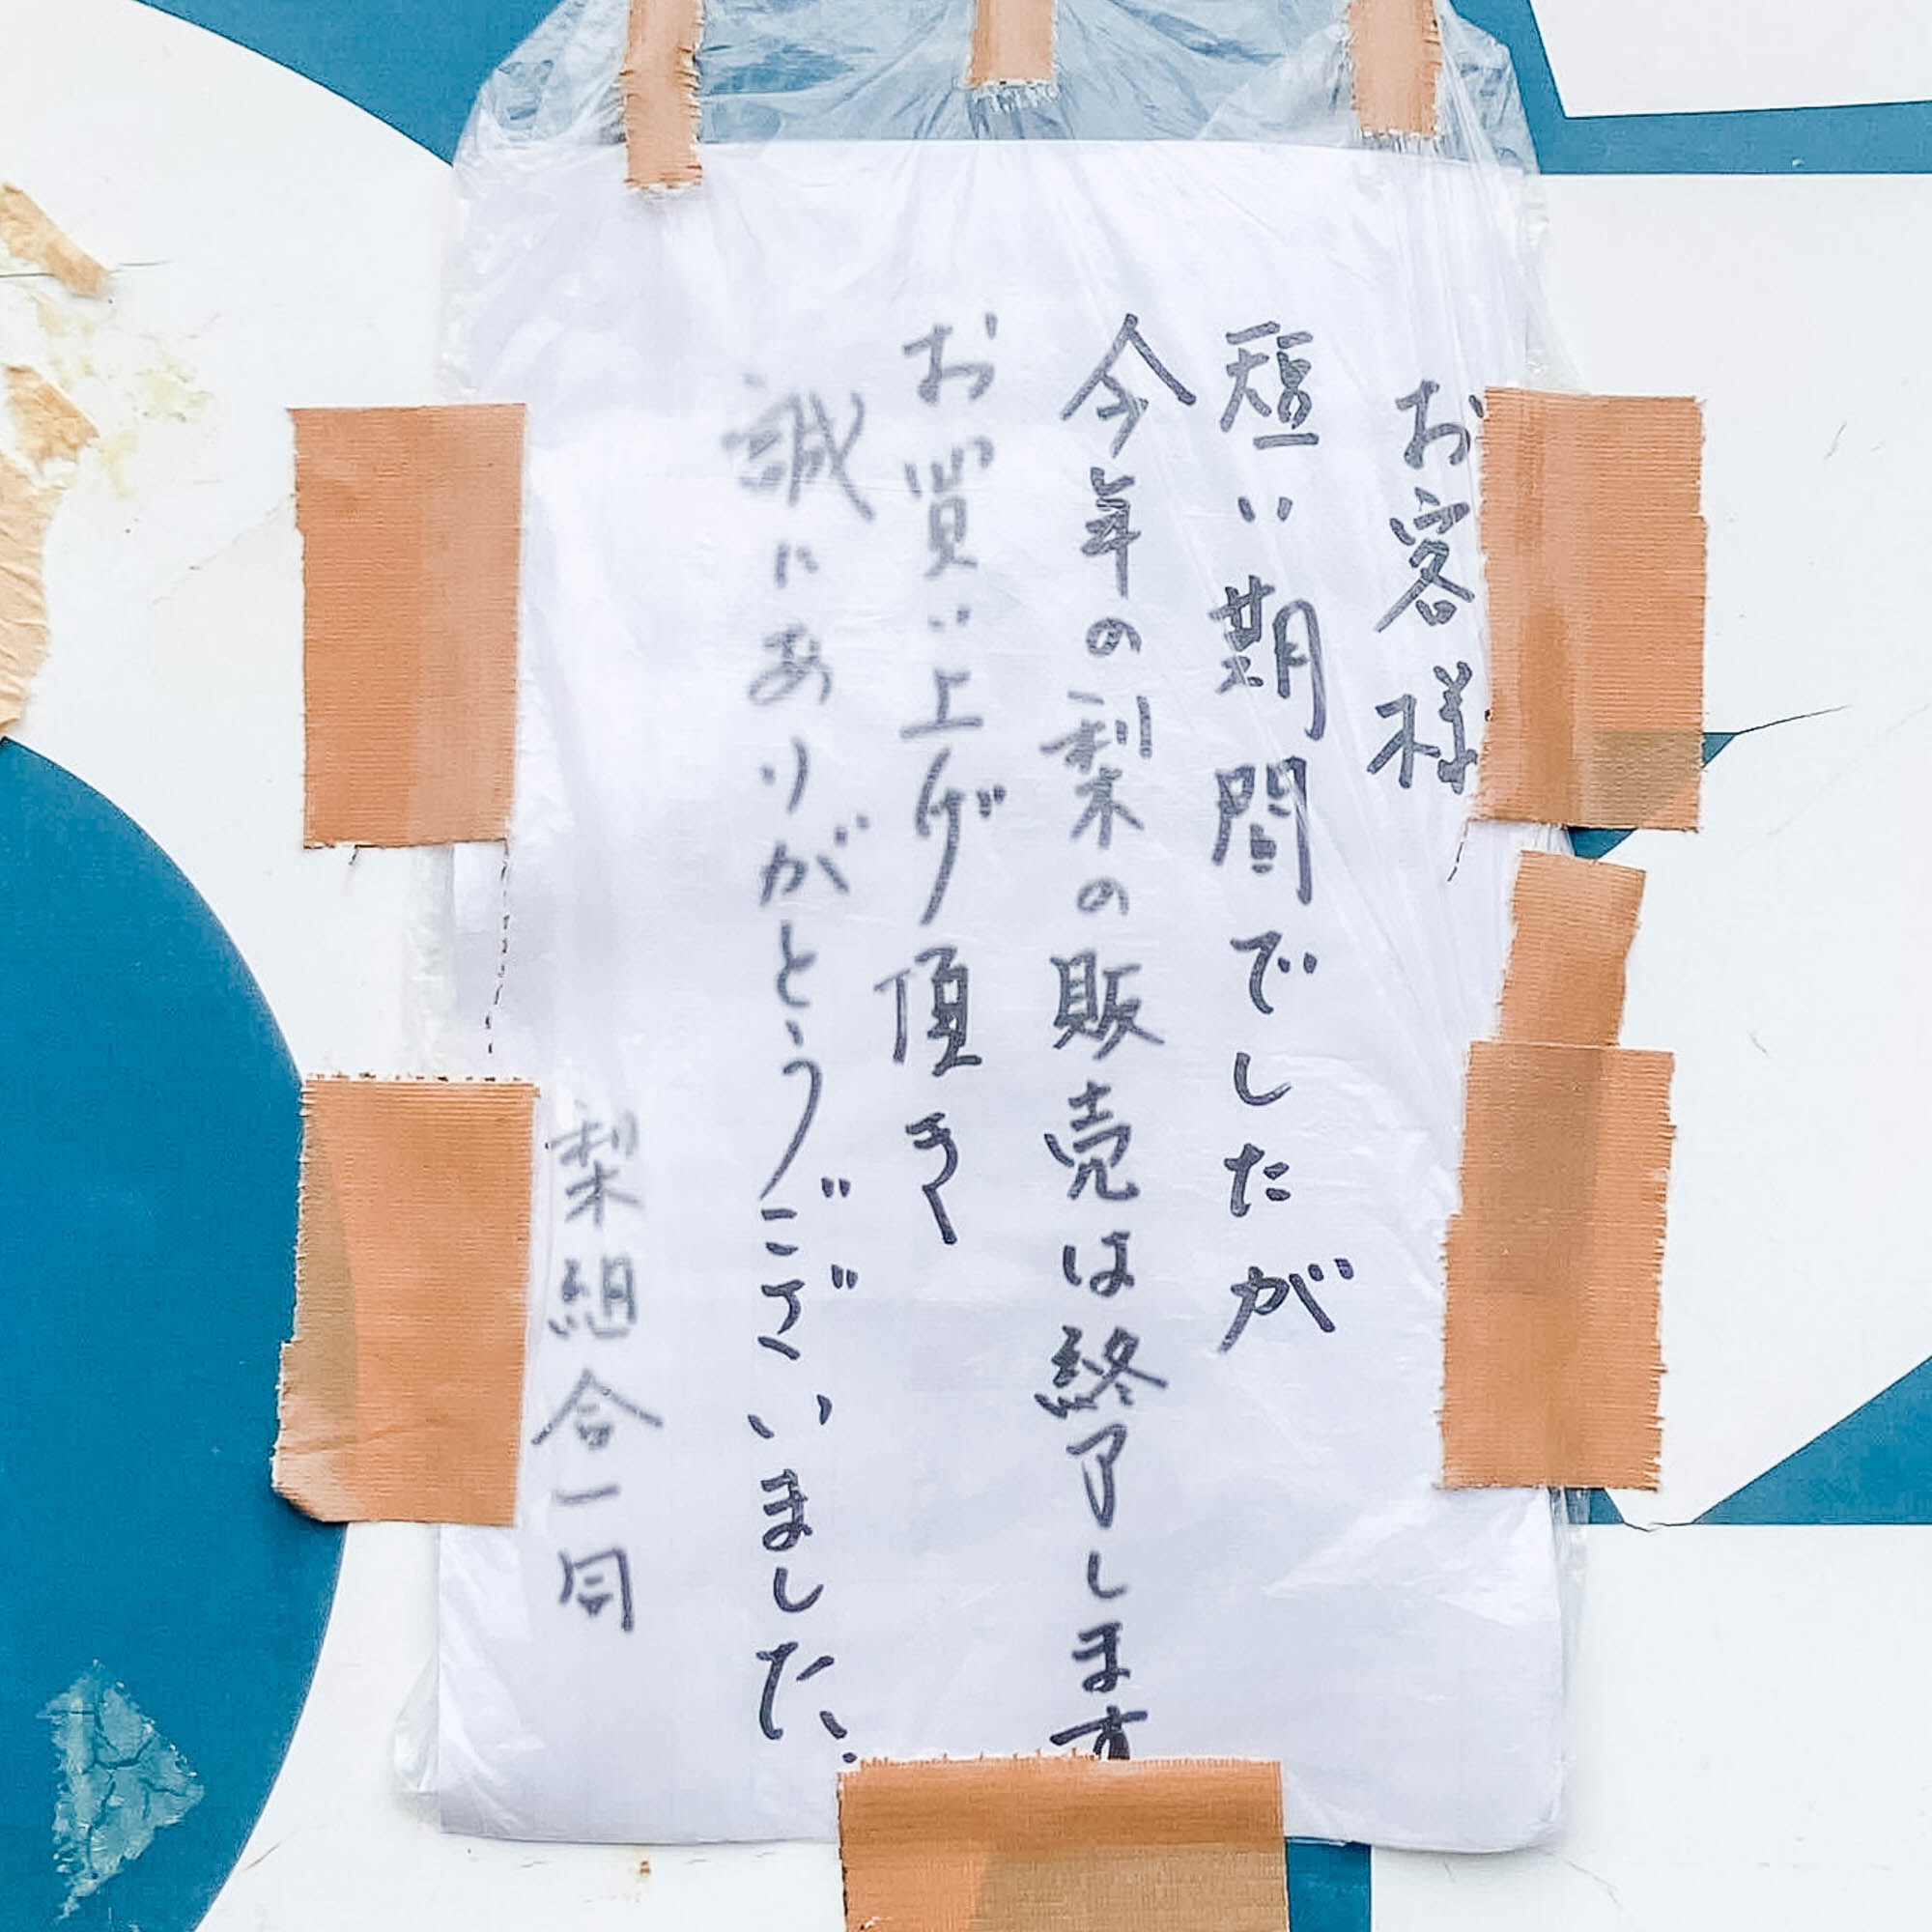 お客様
短い期間でしたが
今年の梨の販売は終了します
お買い上げ頂き
誠にありがとうございました、
梨組合一同